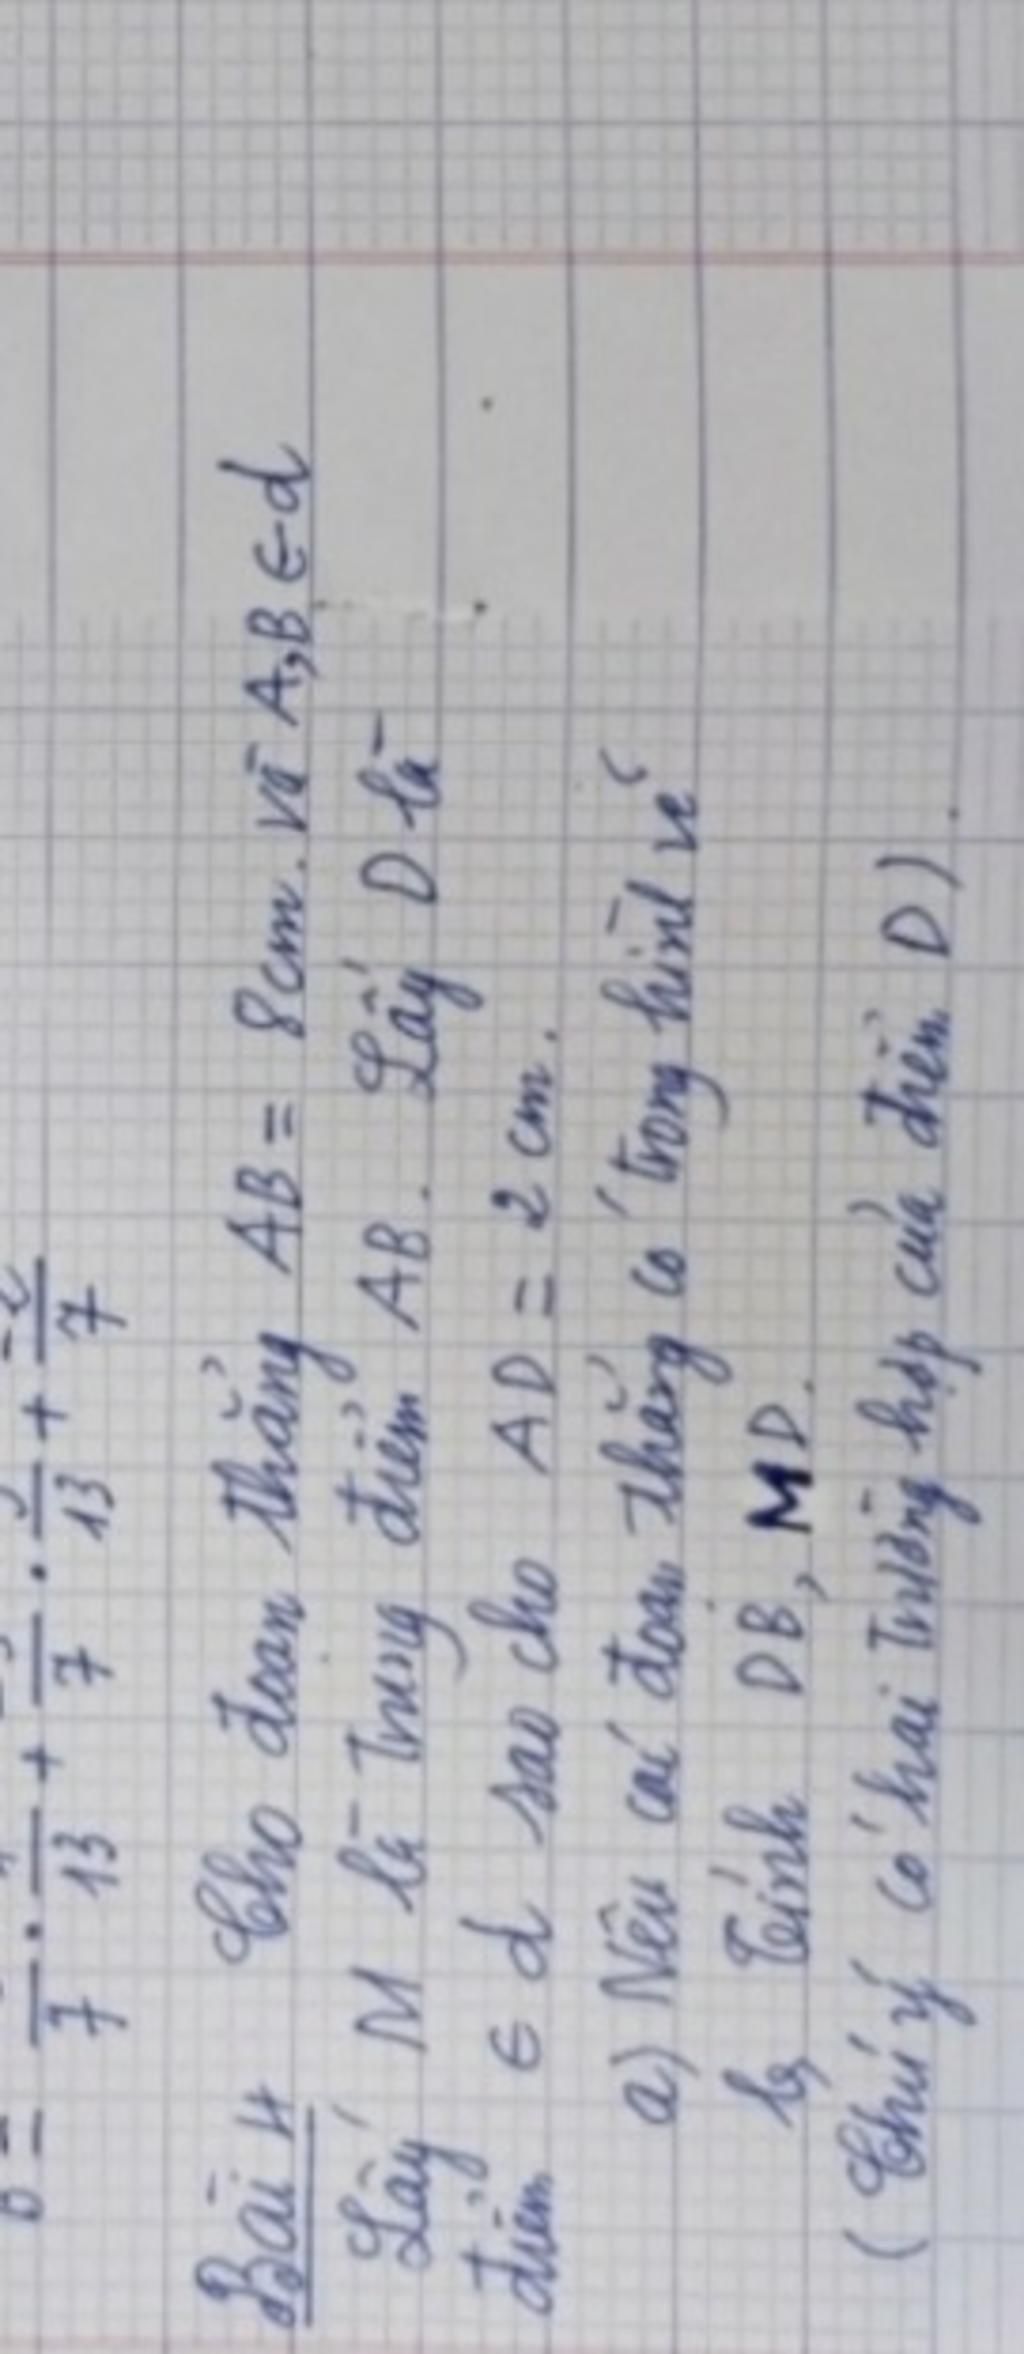 7 . 13 + 7 . 13 + 7
Bài 4 Cho đoạn thẳng AB = 8cm. và A,B ∈ d
Lấy M là trung điểm AB. Lấy D là
điểm ∈ d sao cho AD = 2 cm.
a) Nêu các đoạn thẳng có trong hình vẽ
b, Tính DB, MD.
(Chú ý có hai trường hợp của điểm D).